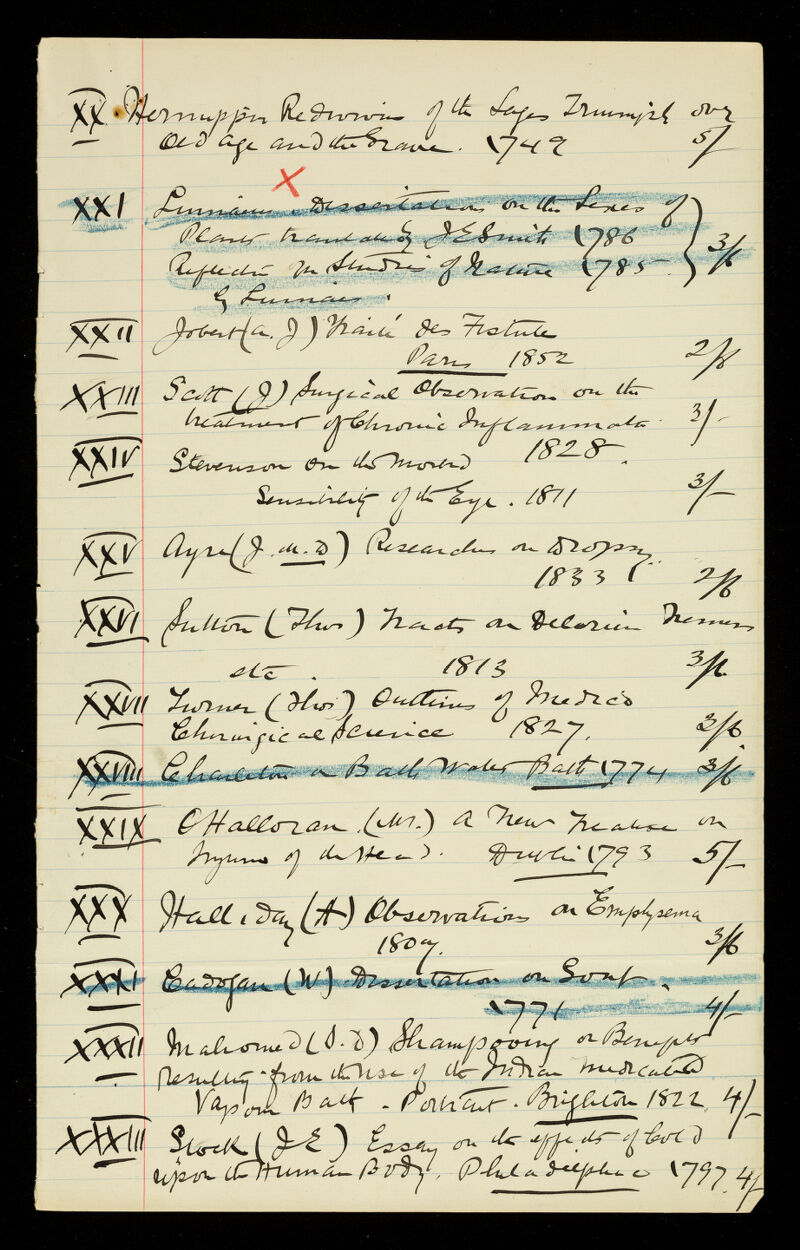 XX Hermippus Redivivus of the Sages Triumph over
Old Age and the Grave. 1749 5/
XXI Linnaeus. Dissertation on the Sexes of
Plants translated by J E Smith 1786
Reflection on Studies of Nature 1785 3/6
by Linnaeus.
XXII Jobert (A. J) Traité des Fistules
Paris 1852 2/6
XXIII Scott (J) Surgical Observation on the
treatment of Chronic Inflammata 3/-
1828.
XXIV Stevenson on the Morbid
Sensibility of the Eye. 1811 3/-
XXV Ayre (J. M.D) Researches on Dropsy
1833 2/6
XXVI Sutton (Thos) Tracts on Delerium Tremens
etc. 1813 3/6
XXVII Turner (Thos) Outlines of Medico
Chirurgical Science 1827. 3/6
XXVIII Charleton on Bath Water Bath 1774 3/6
XXIX O'Halloran (Mr.) A New Treatise on
Injuries of the Head. Dublin 1793 5/-
XXX Halliday (A) Observations on Emphysema
1807. 3/6
XXXI Cadogan (W) Dissertation on Gout.
1771 4/-
XXXII Mahomed (S. D) Shampooing or Benefits
resulting from the use of the Indian Medicated
Vapour Bath - Portrait. Brighton 1822 4/-
XXXIII Stock (J E) Essay on the effects of Cold
upon the Human Body. Philadelphia 1797. 4/-